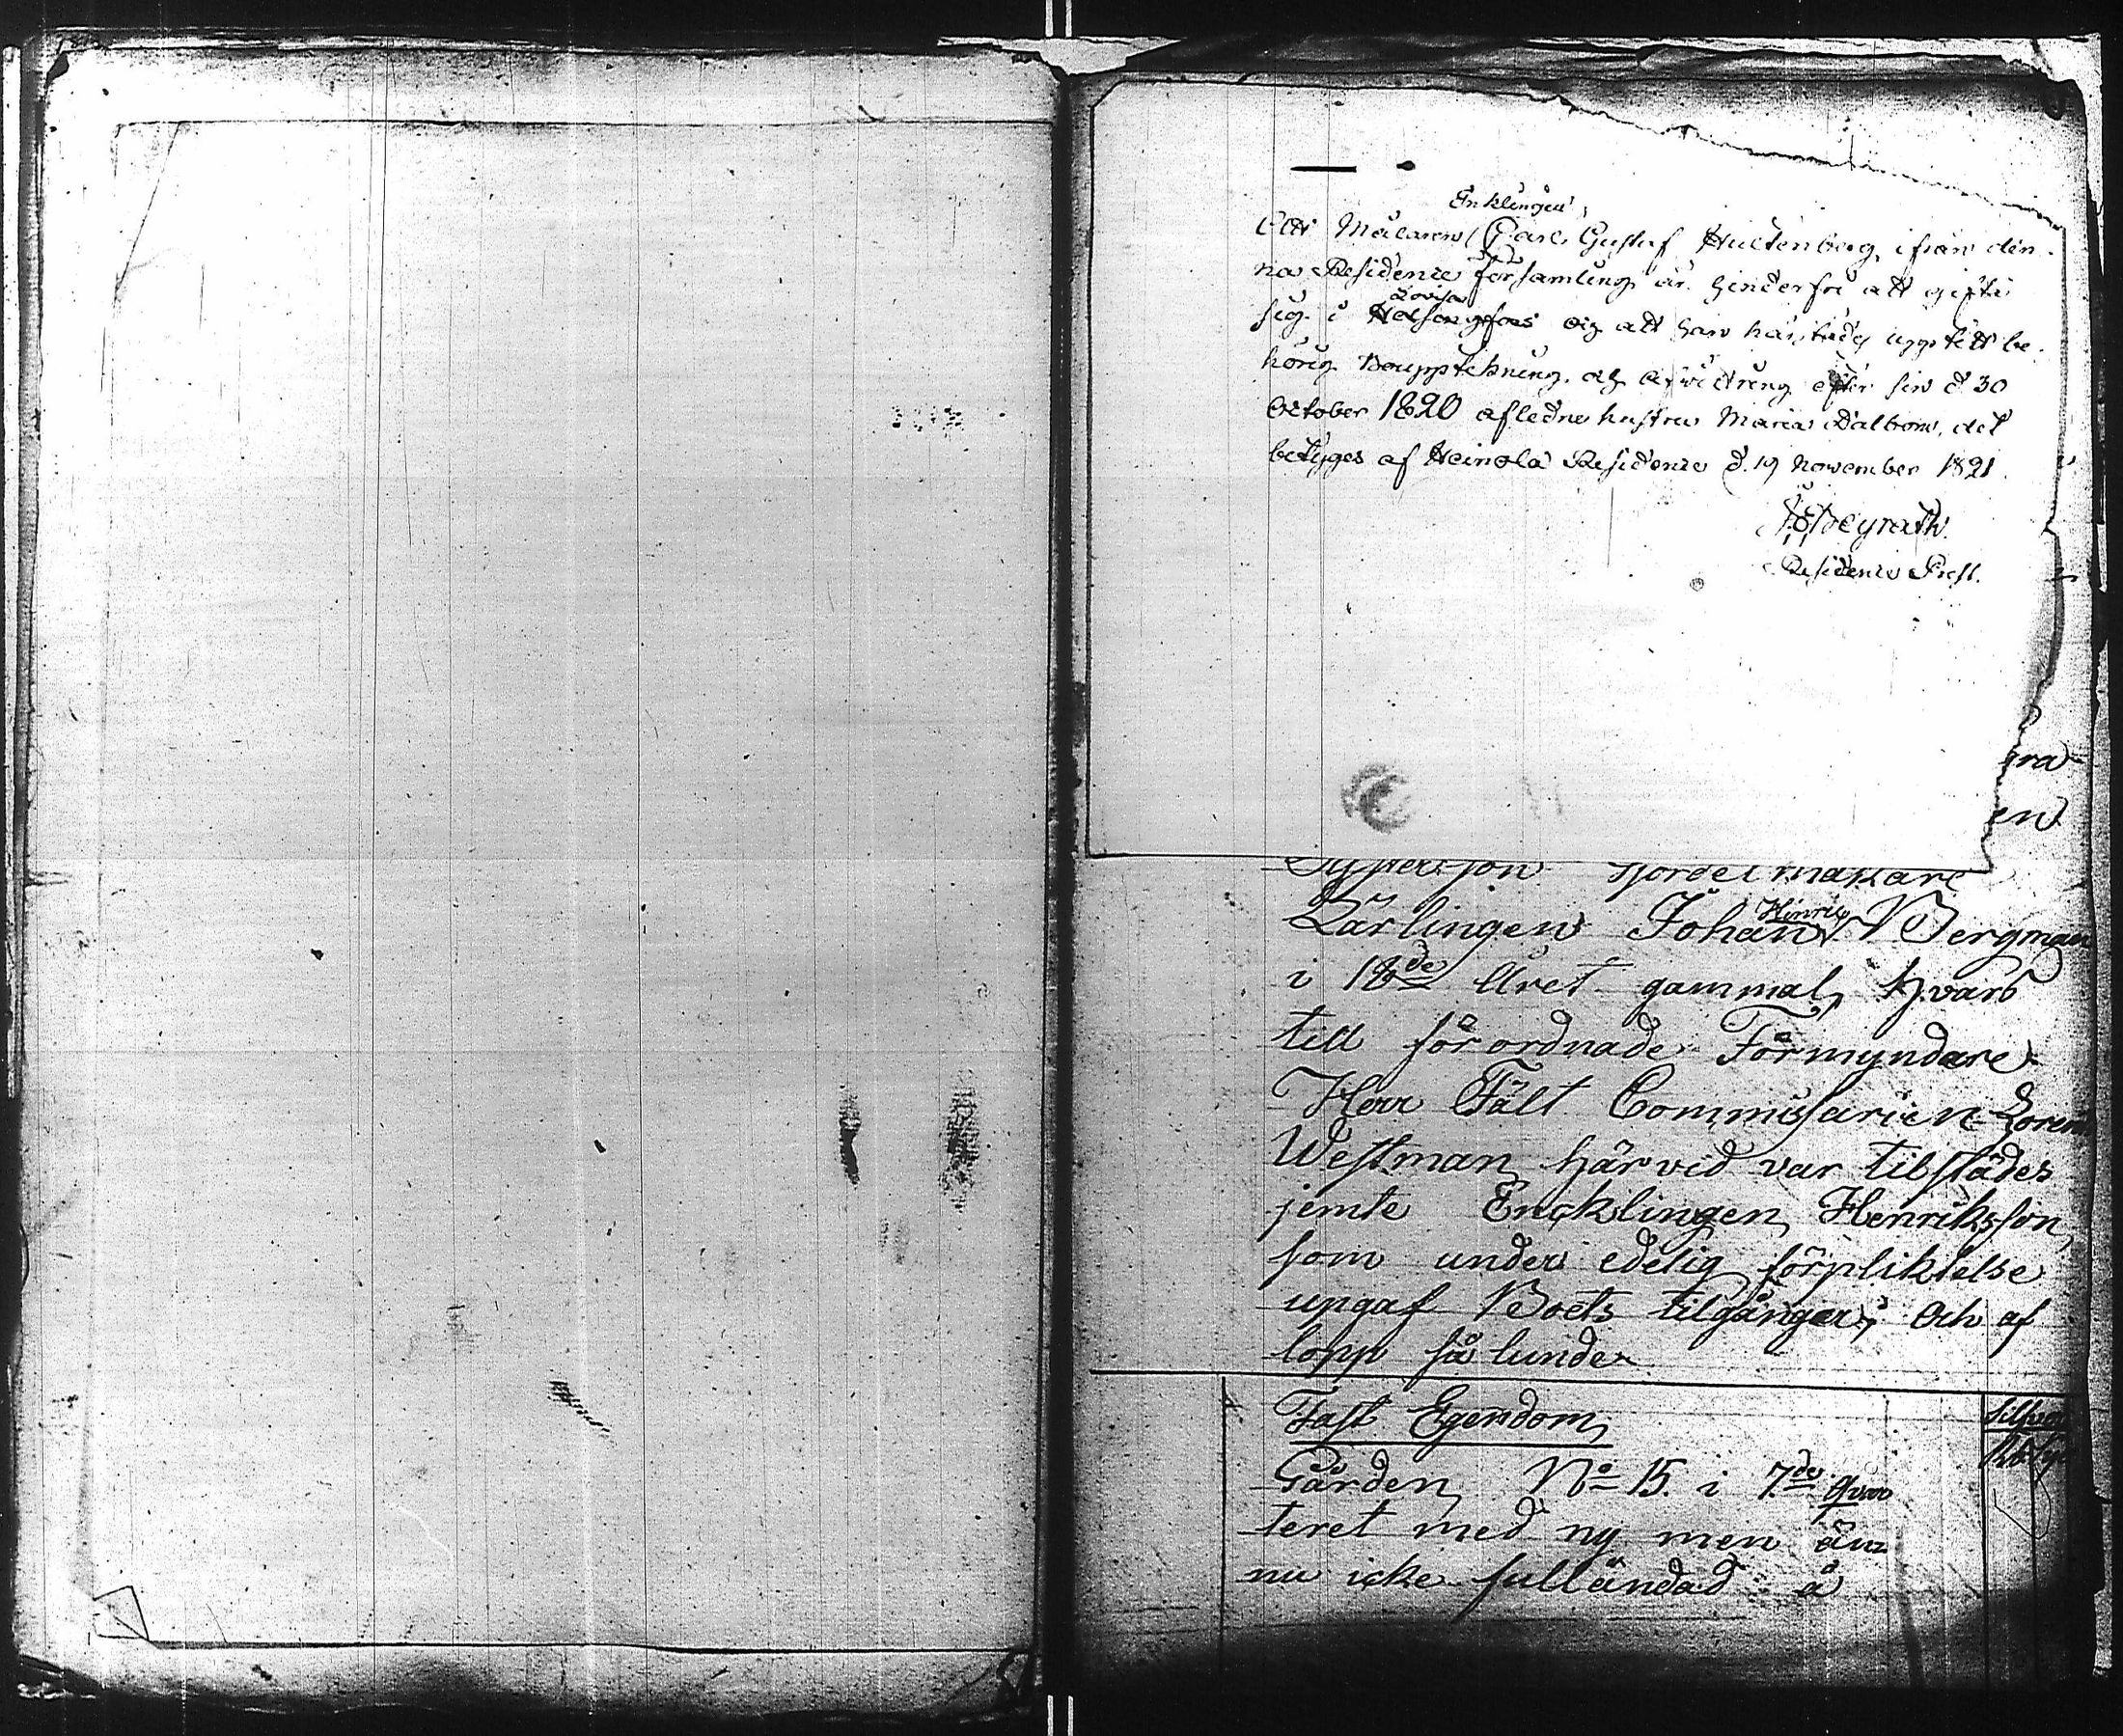 Enklingen
Att Målaren Carl Gustaf Hultenberg, ifrån den
na Residence Församling är hinderfri att gifta
Lovisa
sig i Helsingfors och att han härstädes upptett be
hörig Bouppteckning och afvittring efter sin d 30
October 1820 aflednе hustru Maria Dalbom, det
betyges af Heinola Residence d. 19 November 1821.
Residence Prest.
ra
en
Styfferson Sjordelmakare
Hinric
Lärlingen Johan Bergman
i 18de Året gammal, hvars
till förordnade Förmyndare
Herr Fält Commissarien Loren
Westman härvid var tilstädes
jemte Encklingen Henriksson,
som under edelig förpliktelse
upgaf Boets tilgångar, och af
lopp så lunder
Fast Egendom,
Silfver
Gården No 15. i 7de Qvar
teret med ny men än
nu icke fulländad å